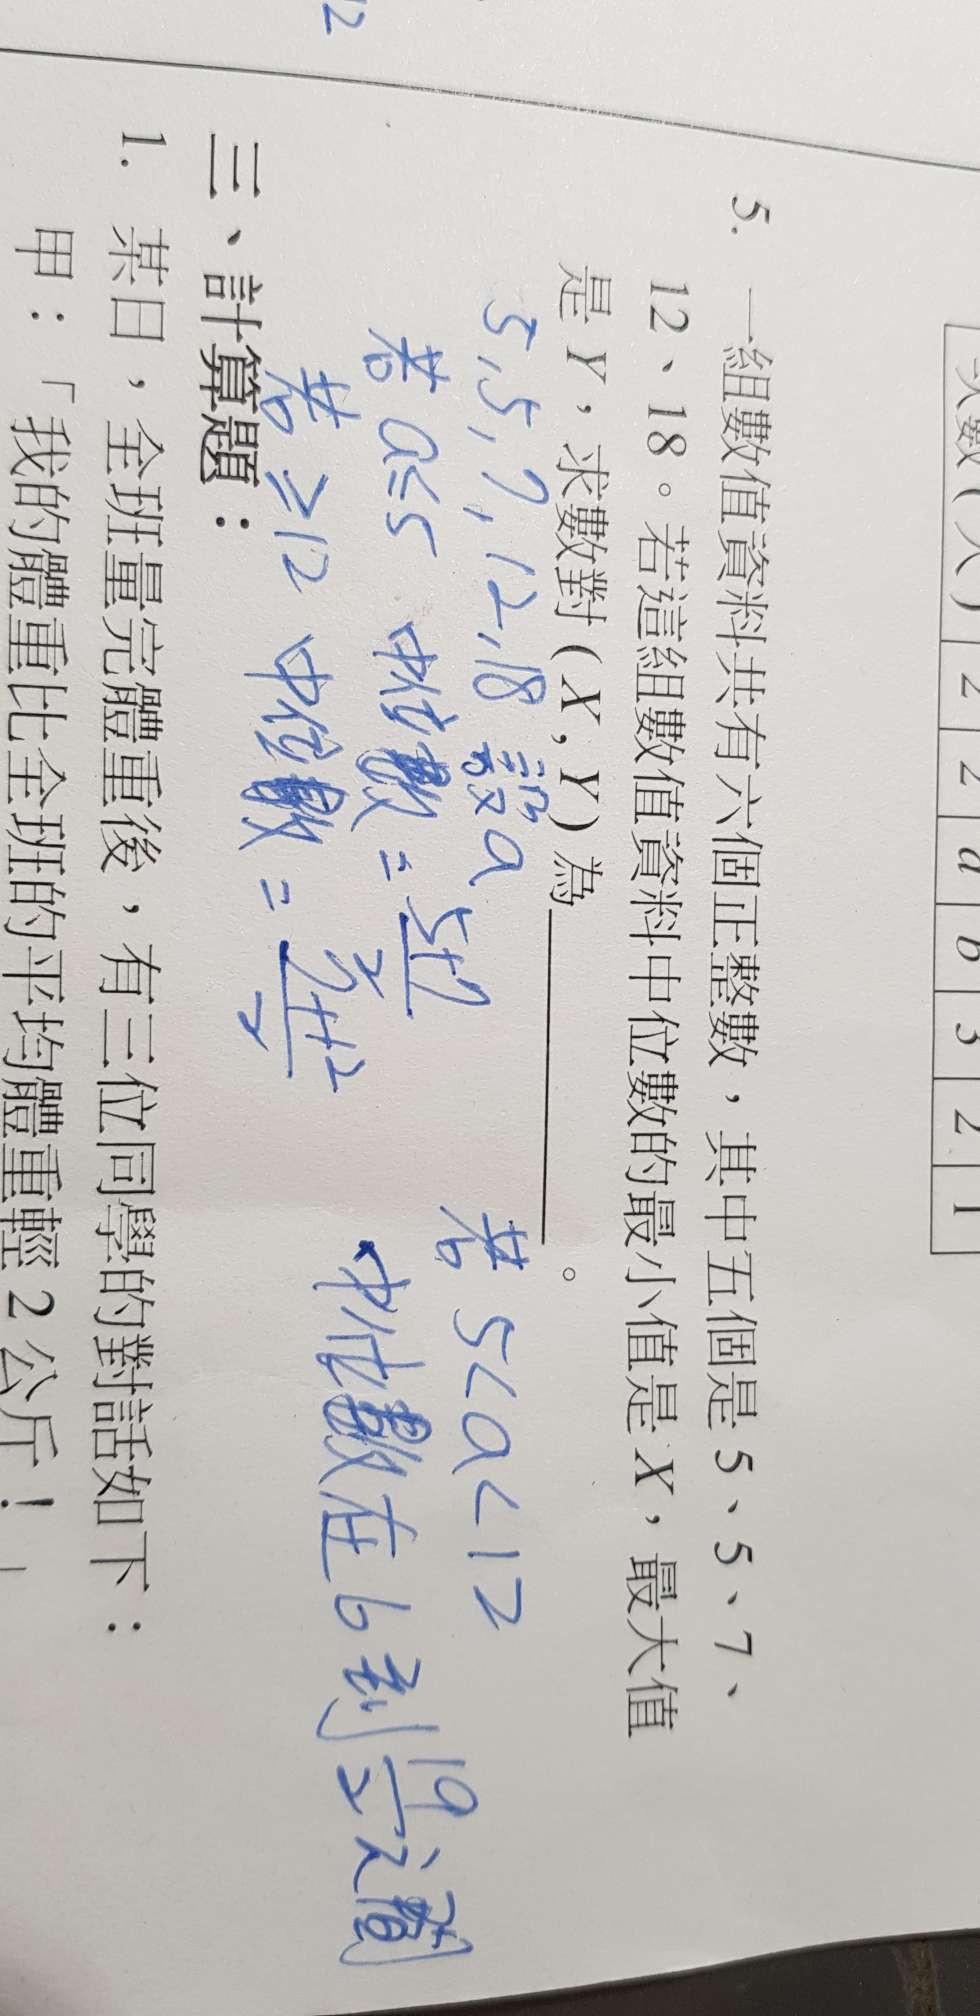 12
次數(人) 2 2 a b 3 2 1
5. 一組數值資料共有六個正整數，其中五個是 5、5、7、
12、18。若這組數值資料中位數的最小值是 X，最大值
是 Y，求數對 (X, Y) 為＿＿＿＿＿＿。
5,5,7,12,18 設a
若 a≤5 中位數 = 5+7/2
若 ≥12 中位數 = 7+12/2
若 5<a<12
中位數在6到19/2之間
三、計算題：
1. 某日，全班量完體重後，有三位同學的對話如下：
甲：「我的體重比全班的平均體重輕 2 公斤！」